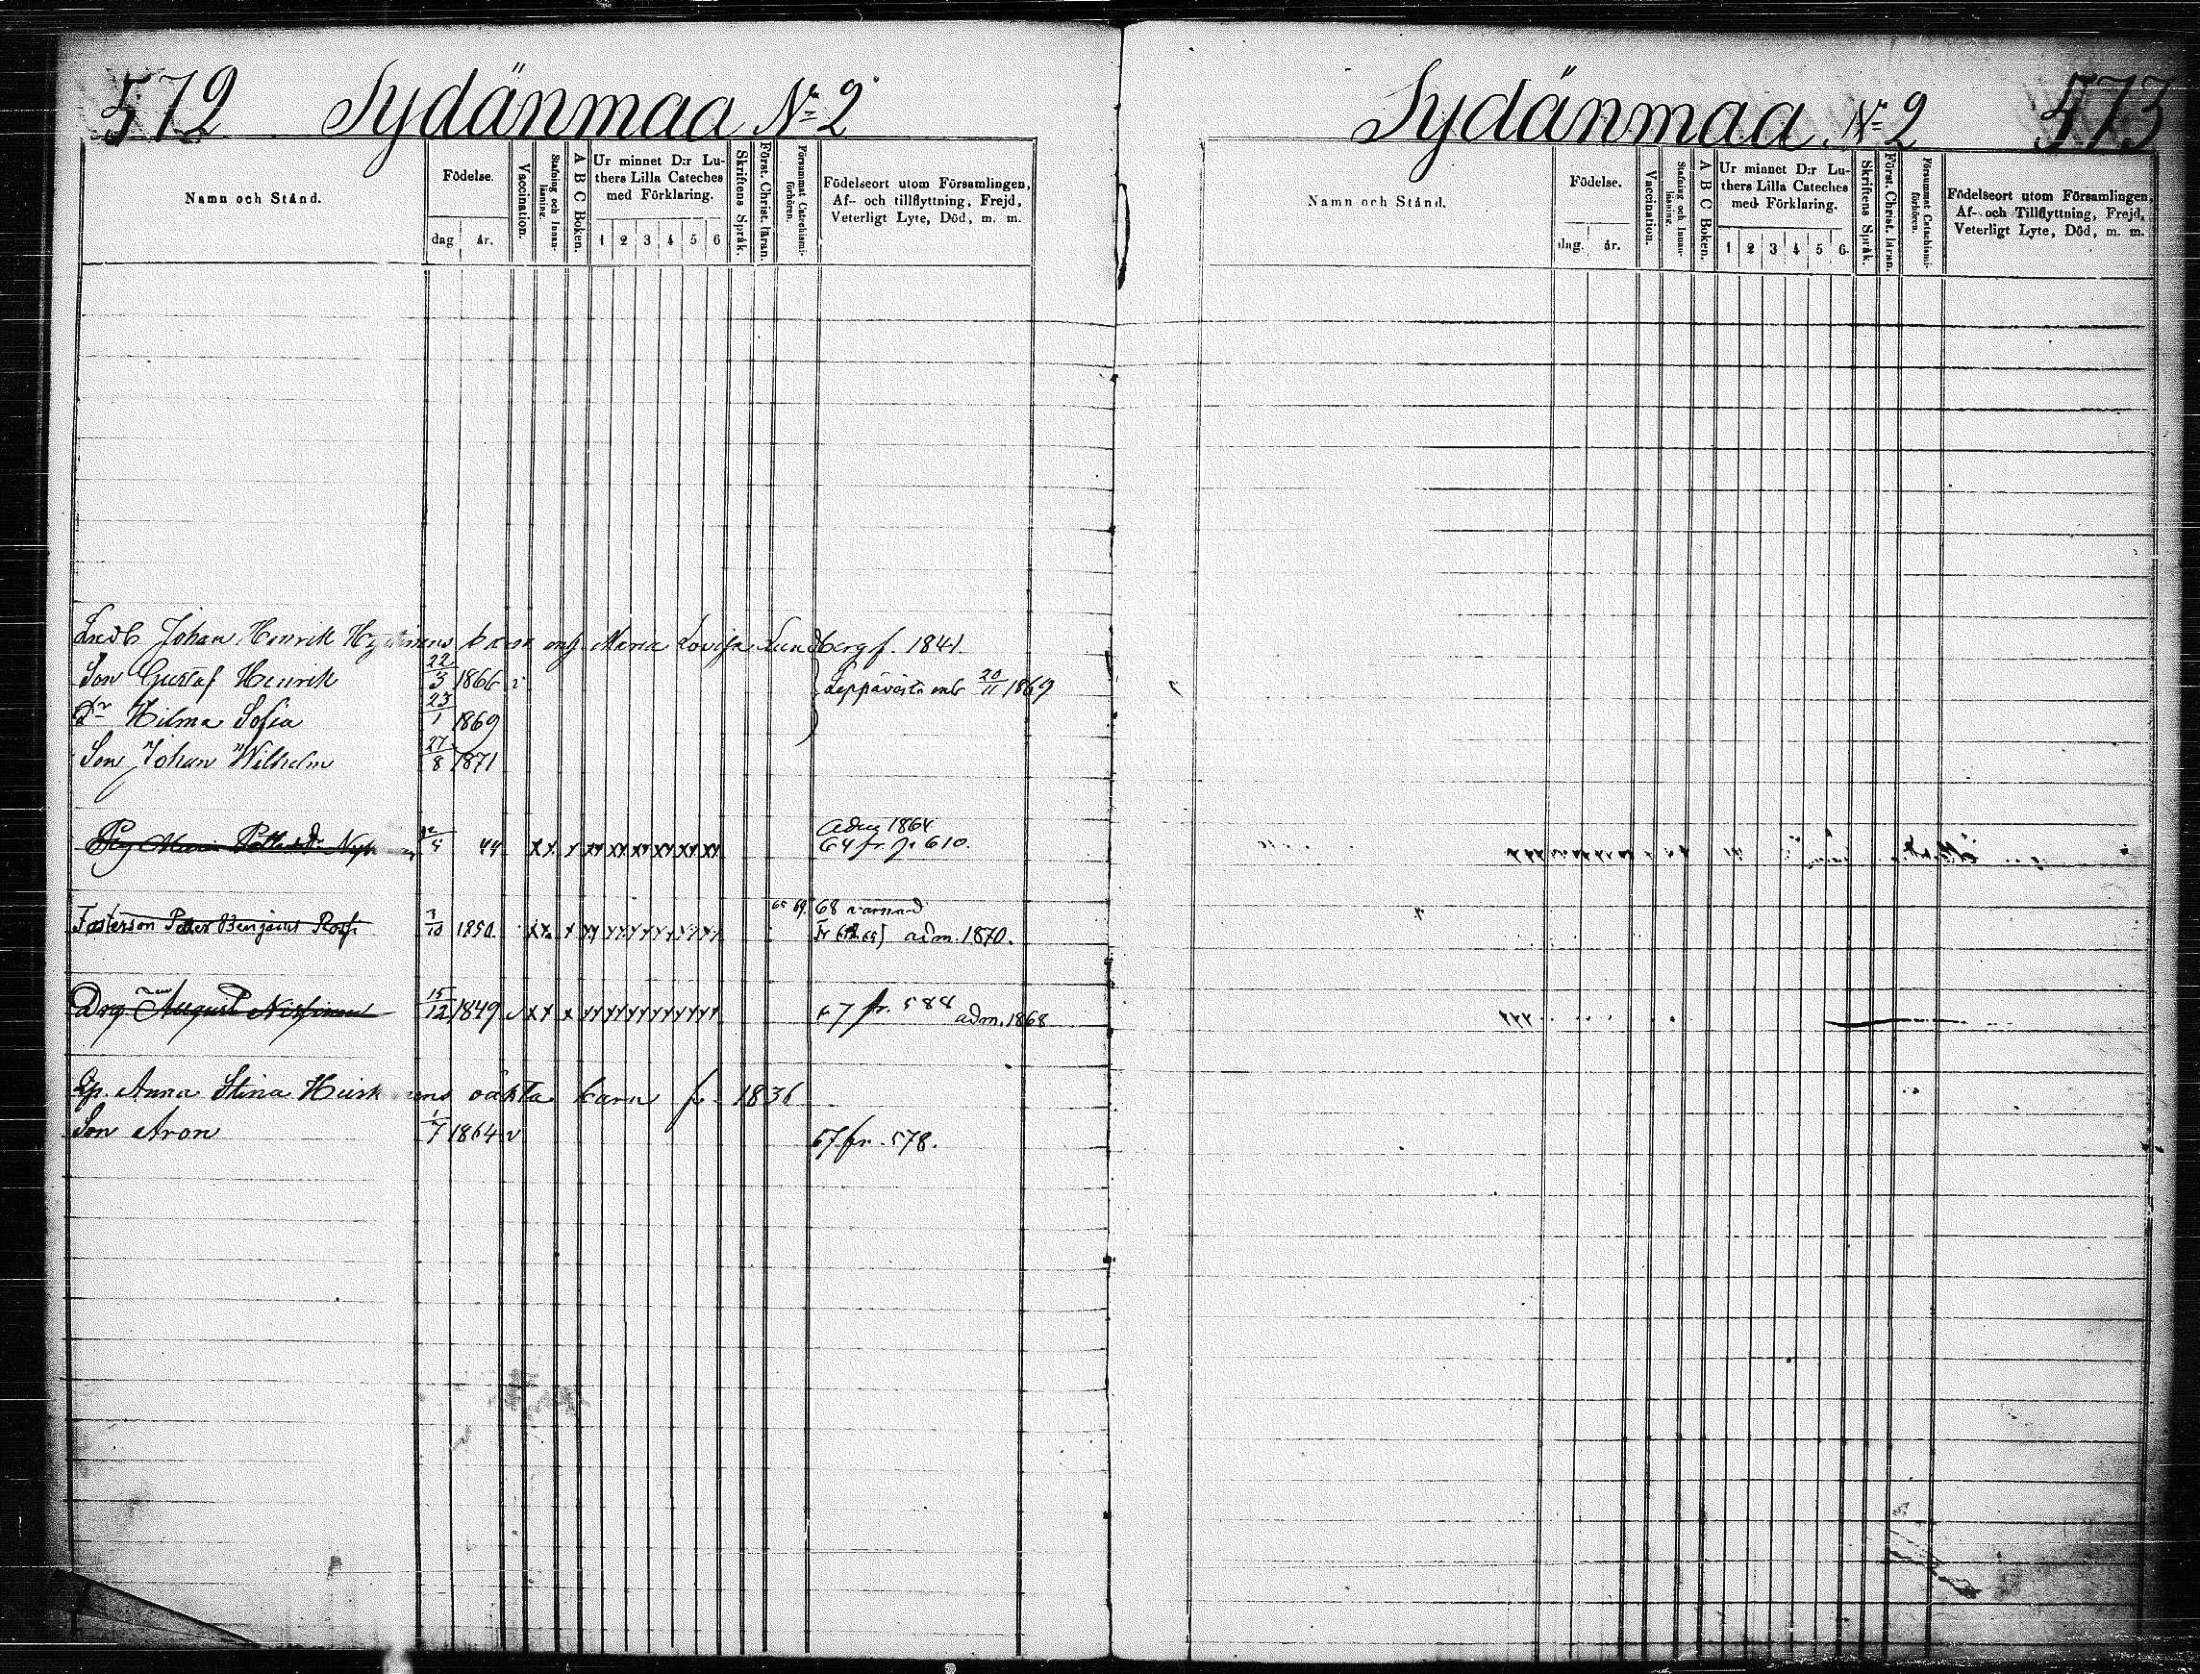 572 Sydänmaa No 2
Namn och Stånd.
Födelse.
dag. år.
Vaccination.
Stafning och Innanläsning.
A B C Boken.
Ur minnet D:r Luthers Lilla Cateches med Förklaring.
1 2 3 4 5 6
Skriftens Språk.
Först. Christ. läran.
Försummat Catechismiförhören.
Födelseort utom Församlingen,
Af- och tillflyttning, Frejd,
Veterligt Lyte, Död, m. m.
Johan Henrik barn Maria Lovisa Lundberg f. 1841.
Son Gustaf Henrik 22/3 1866
Leppävirta 20/11 1869
Dr Hilma Sofia 23/1 1869
Son Johan Wilhelm 27/8 1871
Pig Maria 44 xx x xx xx xx xx xx xx
adm 1864
64 fr. p 610.
Fosterson Petter Benjamin 1850. xx x
68
adm. 1870.
Drg August 15/12 1849 xx x
67 fr. 588 adm. 1868
Anna Stina oäkta barn f. 1836
Son Aron 1/7 1864 v
67 fr. 578.
Sydänmaa No 2 573
Namn och Stånd.
Födelse.
dag. år.
Vaccination.
Stafning och Innanläsning.
A B C Boken.
Ur minnet D:r Luthers Lilla Cateches med Förklaring.
1 2 3 4 5 6.
Skriftens Språk.
Först. Christ. läran.
Försummat Catechismiförhören.
Födelseort utom Församlingen,
Af- och Tillflyttning, Frejd,
Veterligt Lyte, Död, m. m.